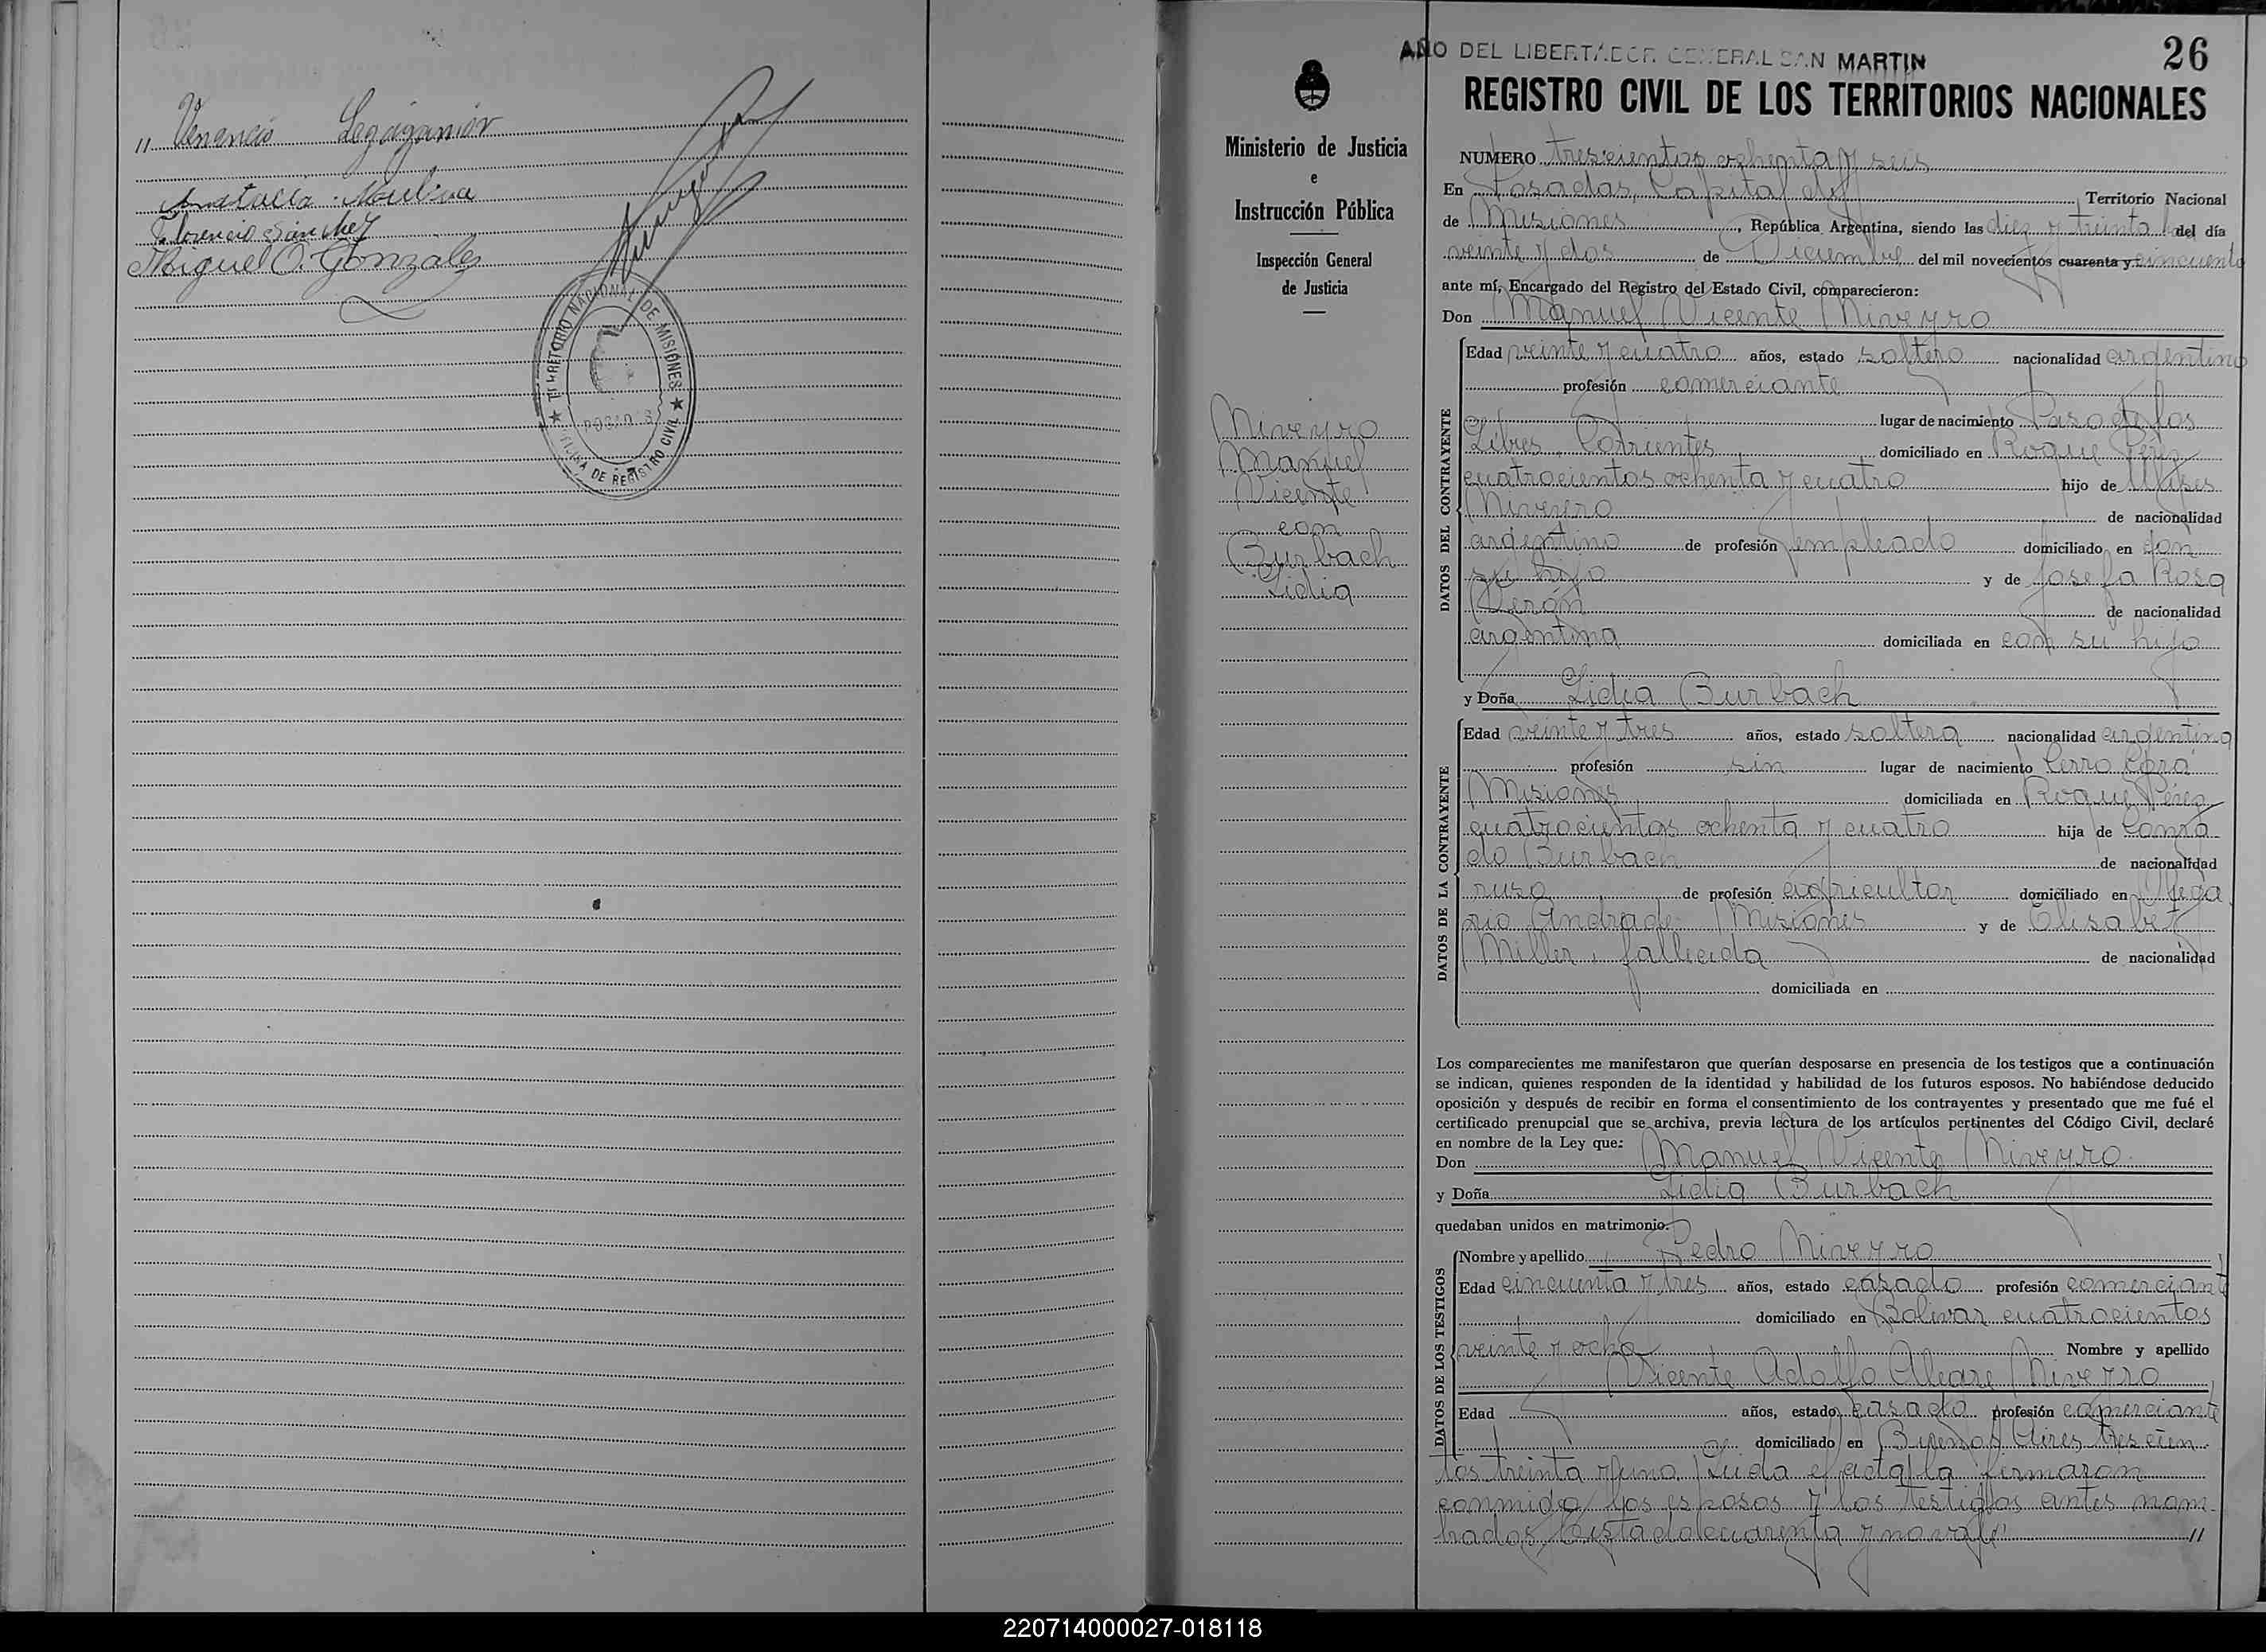 " Venancio Leguizamón
Anatalia Molina
Florencio Sánchez
Miguel O. Gonzalez
TERRITORIO NACIONAL DE MISIONES
POSADAS
OFICINA DE REGISTRO CIVIL
AÑO DEL LIBERTADOR GENERAL SAN MARTIN
26
Ministerio de Justicia
e
Instrucción Pública
Inspección General
de Justicia
Niveyro
Manuel
Vicente
con
Burbach
Lidia
REGISTRO CIVIL DE LOS TERRITORIOS NACIONALES
NUMERO trescientos ochenta y seis
En Posadas, Capital del Territorio Nacional
de Misiones, República Argentina, siendo las diez y treinta h del día
veinte y dos de Diciembre del mil novecientos cuarenta y cincuenta
ante mí, Encargado del Registro del Estado Civil, comparecieron:
Don Manuel Vicente Niveyro
DATOS DEL CONTRAYENTE
Edad veinte y cuatro años, estado soltero nacionalidad argentino
profesión comerciante
lugar de nacimiento Paso de los
Libres, Corrientes domiciliado en Roque Pérez
cuatrocientos ochenta y cuatro hijo de Ulises
Niveyro de nacionalidad
argentino de profesión empleado domiciliado en con
su hijo y de Josefa Rosa
Verón de nacionalidad
argentina domiciliada en con su hijo
y Doña Lidia Burbach
DATOS DE LA CONTRAYENTE
Edad veinte y tres años, estado soltera nacionalidad argentina
profesión sin lugar de nacimiento Cerro Corá
Misiones domiciliada en Roque Pérez
cuatrocientos ochenta y cuatro hija de Conra
do Burbach de nacionalidad
ruso de profesión agricultor domiciliado en Olega
rio Andrade Misiones y de Elisabet
Miller, fallecida de nacionalidad
domiciliada en
Los comparecientes me manifestaron que querían desposarse en presencia de los testigos que a continuación
se indican, quienes responden de la identidad y habilidad de los futuros esposos. No habiéndose deducido
oposición y después de recibir en forma el consentimiento de los contrayentes y presentado que me fué el
certificado prenupcial que se archiva, previa lectura de los artículos pertinentes del Código Civil, declaré
en nombre de la Ley que:
Don Manuel Vicente Niveyro
y Doña Lidia Burbach
quedaban unidos en matrimonio.
DATOS DE LOS TESTIGOS
Nombre y apellido Pedro Niveyro
Edad cincuenta y tres años, estado casado profesión comerciante
domiciliado en Bolivar cuatrocientos
veinte y ocho Nombre y apellido
Vicente Adolfo Alegre Niveyro
Edad años, estado casado profesión comerciante
domiciliado en Buenos Aires trescien
tos treinta y uno Leida el acta la firmaron
conmigo los esposos y los testigos antes nom-
brados Testado cuarenta y no vale //
220714000027-018118